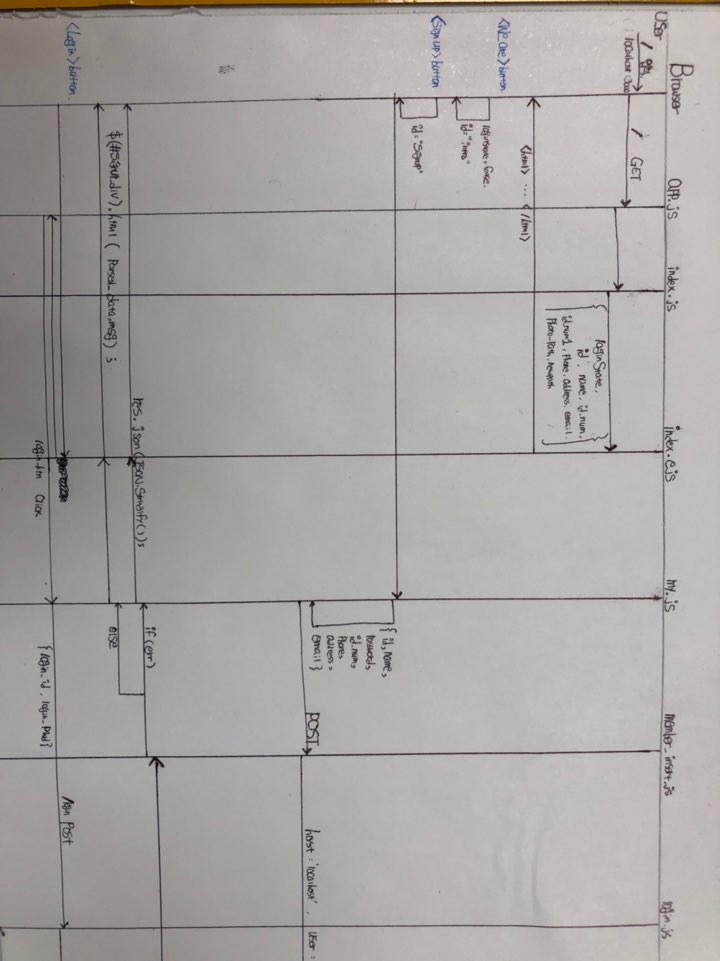 User
Browser
app.js
index.js
index.ejs
my.js
member_insert.js
login.js
/
localhost:3000
/ GET
{ loginState,
id, name, id_num,
id_num1, phone, address, email,
}
<html> ... </html>
button
loginState=false.
id="intro"
<Sign up> button
id="signup"
{ id, name,
password,
id_num,
phone,
address,
email }
POST
host: 'localhost', user:
if(err)
else
res.json(JSON.stringify());
.html( Parsed_data.msg) ;
<Login> button.
login_btn Click
{login_id, login_pwd}
POST